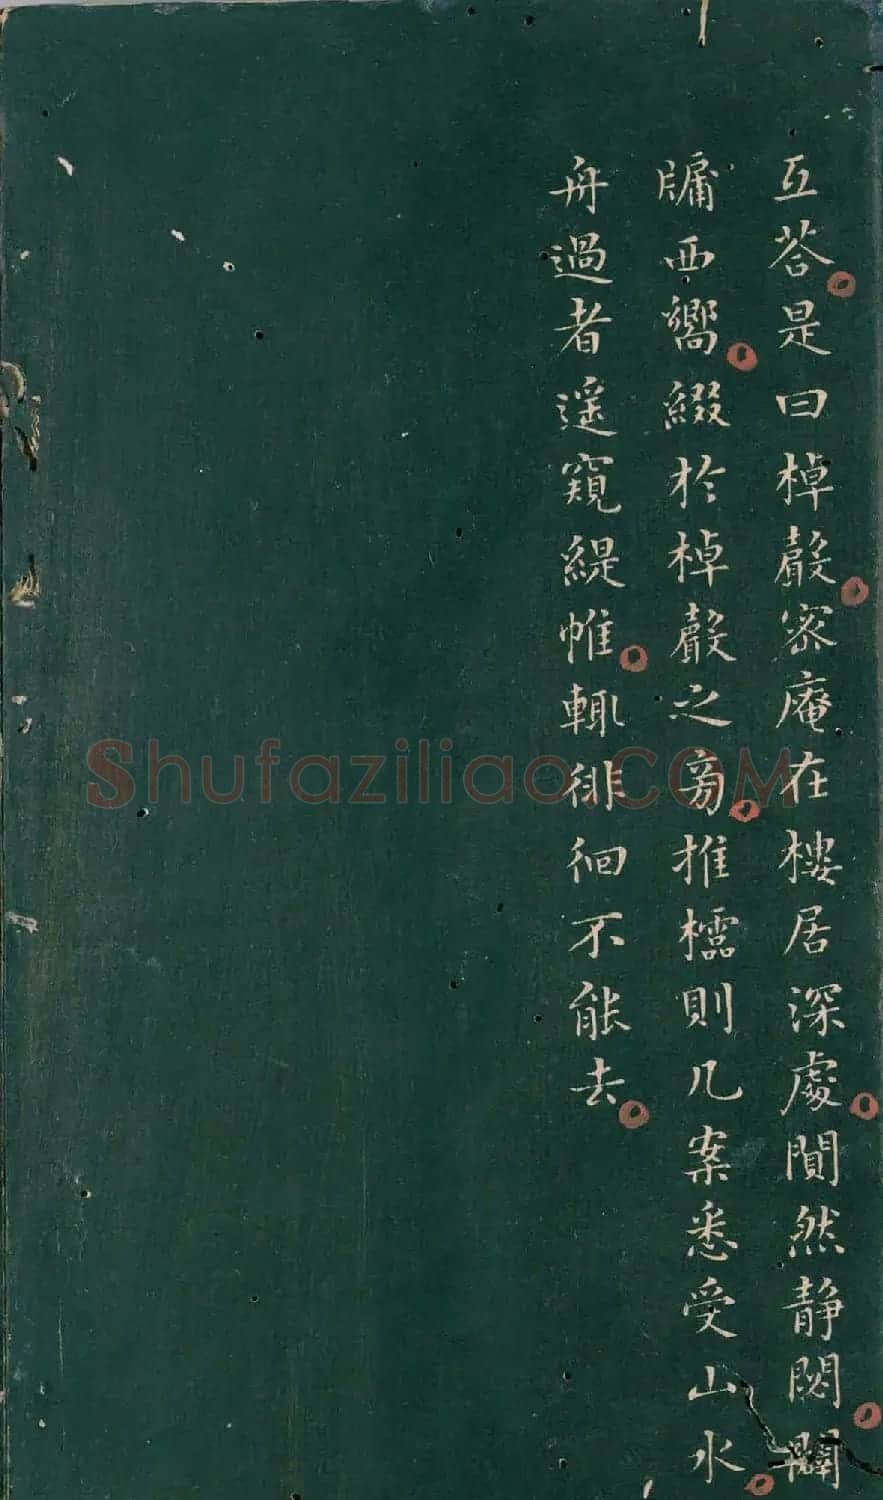 互荅是曰棹聲密庵在樓居深處闃然静閟闢
牖西嚮綴於棹聲之旁推櫺則几案悉受山水
舟過者遥窺緹帷輒徘徊不能去
Shufaziliao.COM